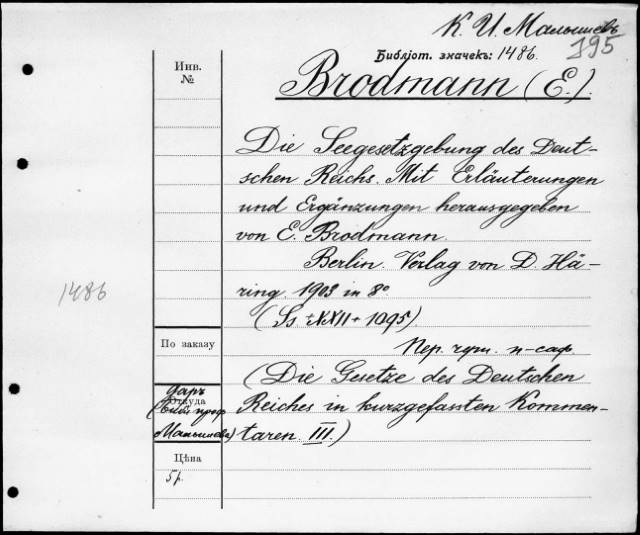 К. И. Малышевъ
195
Инв.
№
Библіот. значекъ: 1486.
Brodmann (E.).
Die Seegesetzgebung des Deut-
schen Reichs. Mit Erläuterungen
und Ergänzungen herausgegeben
von E. Brodmann.
Berlin. Verlag von D. Hä-
ring. 1903 in 8°
1486
(Ss. + XXII + 1095).
По заказу
Пер.
(Die Gesetze des Deutschen
Reiches in kurzgefassten Kommen-
taren. III.)
даръ
Откуда
(библ. проф.
Малышева)
Цѣна
5р.